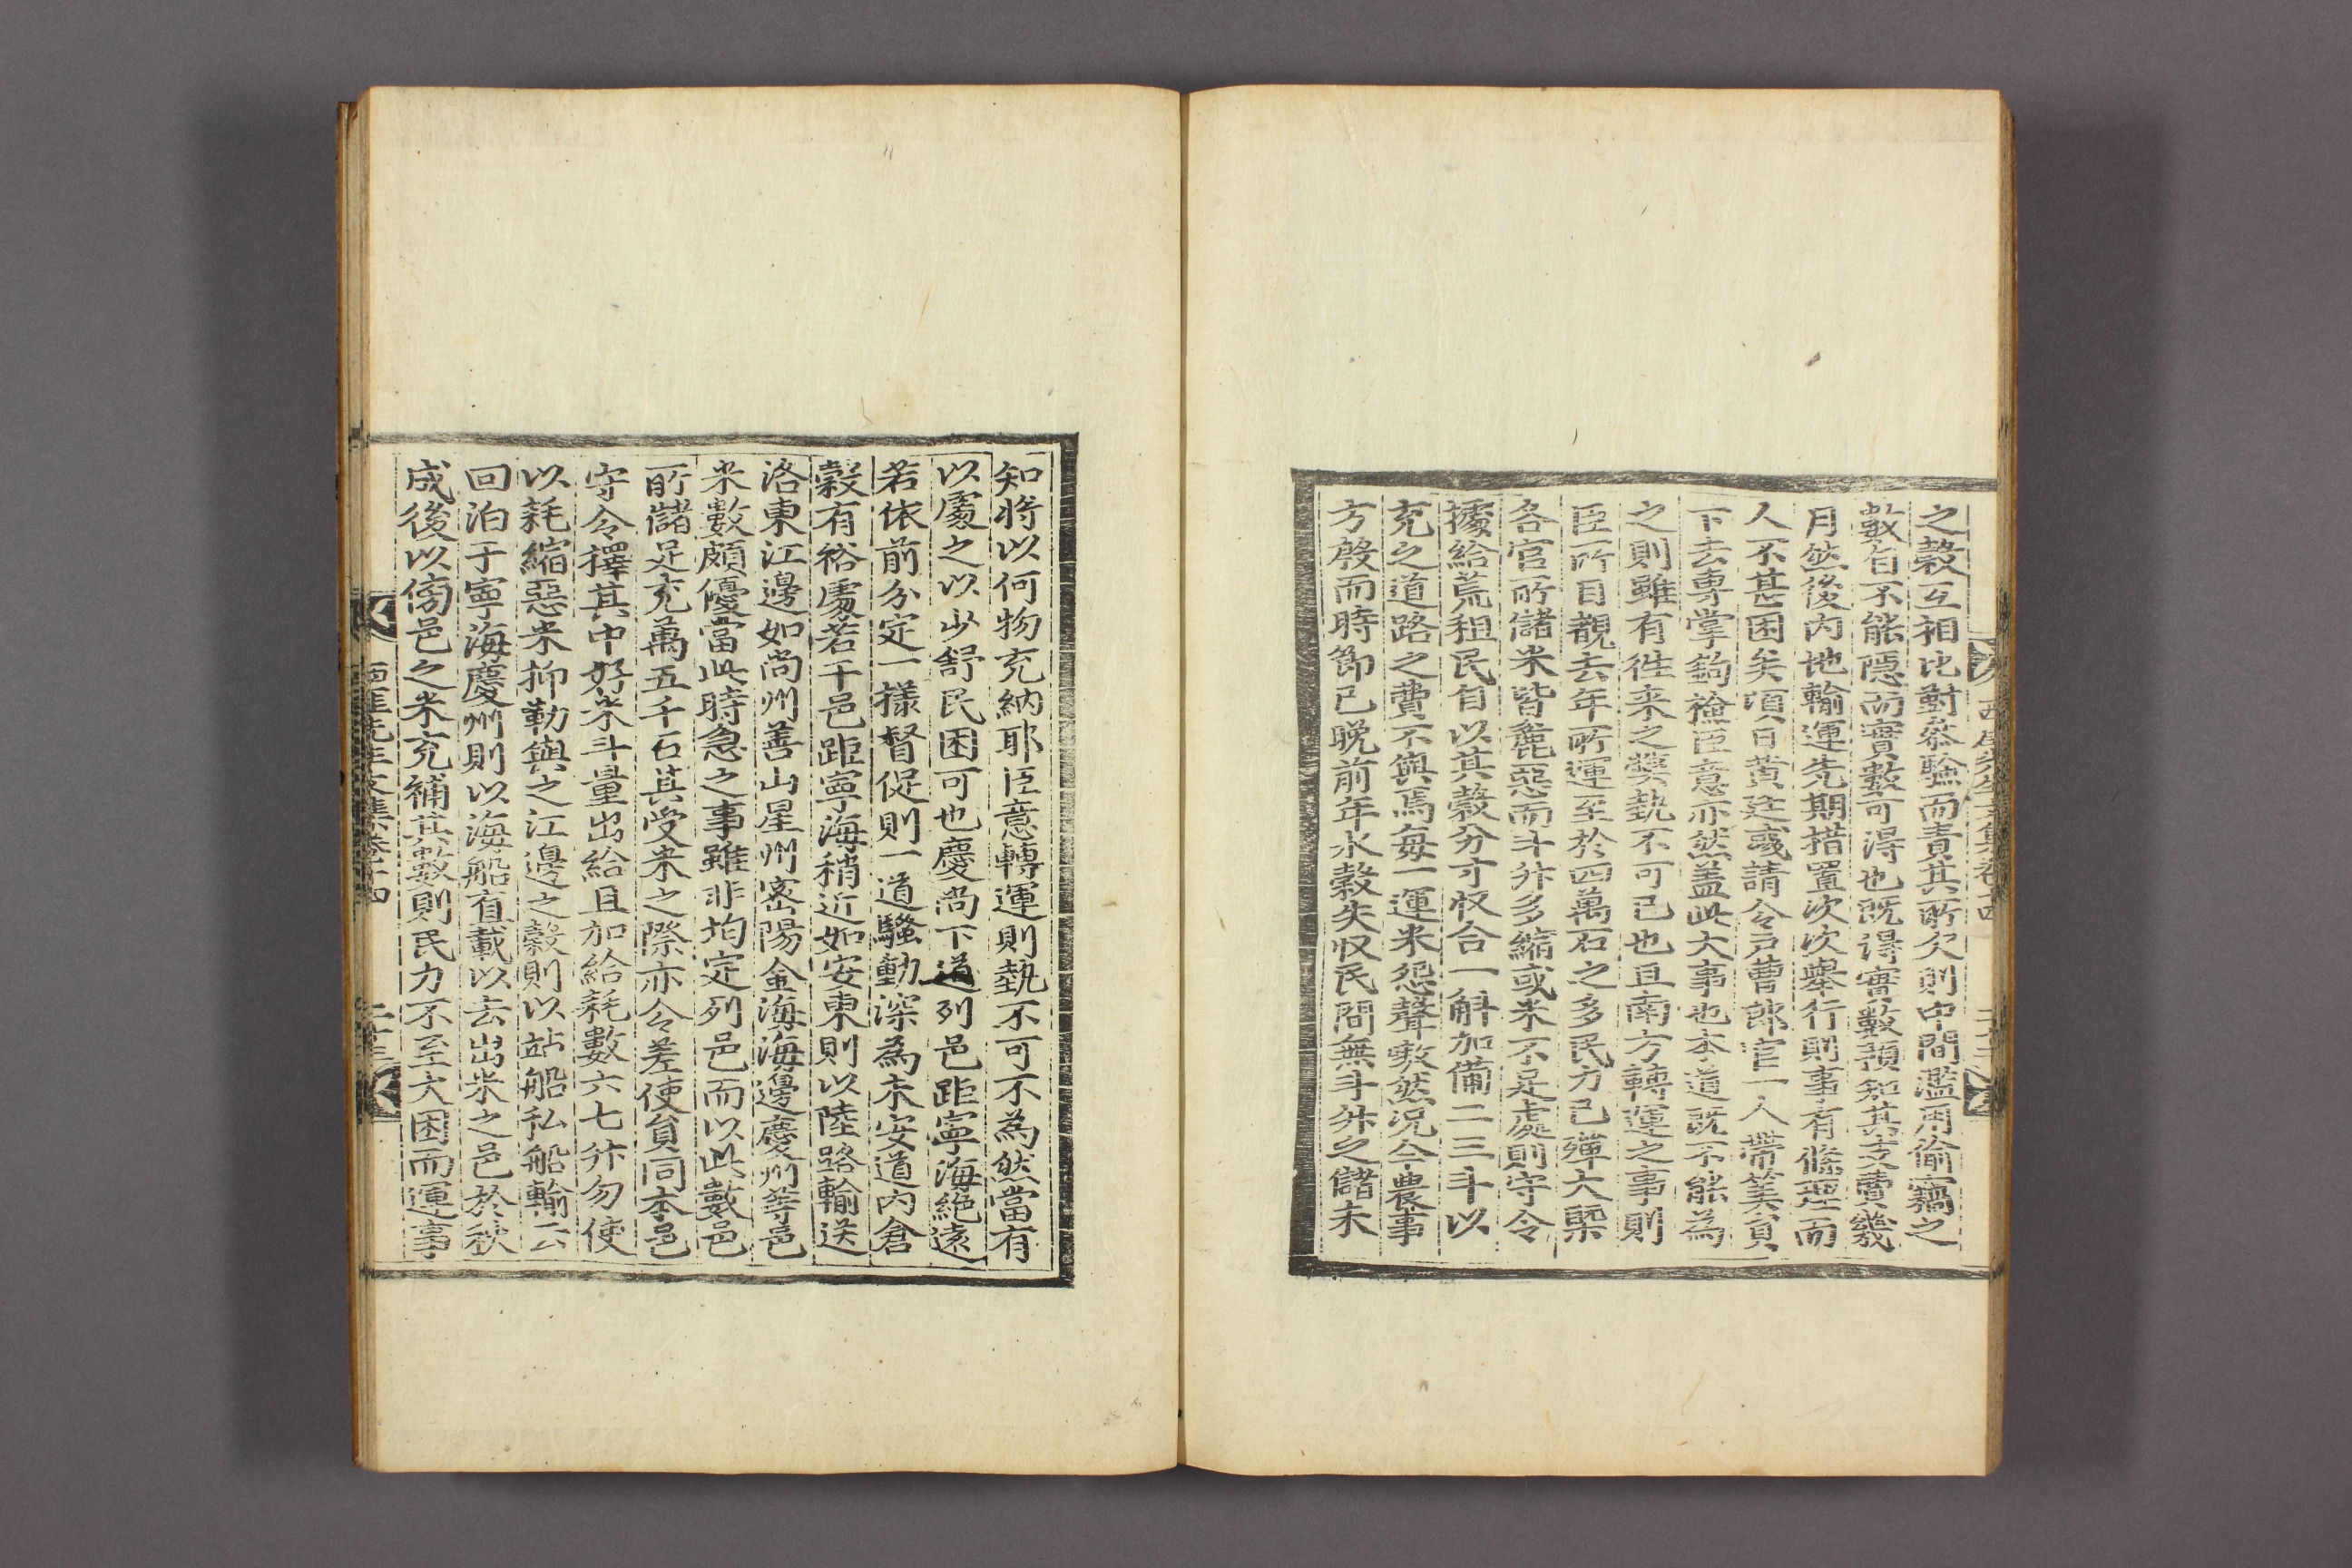 之穀互相比對叅驗而責其所欠則中間濫用偷竊之
數自不能隱而實數可得也旣得實數預知其支費幾
月然後內地輸運先期措置次次擧行則事有條理而
人不甚困矣頃日黃廷彧請令戶曹郞官一人帶筭員
下去專掌鉤撿臣意亦然盖此大事也本道旣不能爲
之則雖有徃来之弊勢不可已也且南方轉運之事則
臣所目覩去年所運至於四萬石之多民力已殫大槩
各官所儲米皆麁惡而斗升多縮或米不足處則守令
據給荒租民自以其穀分寸収合一斛加備二三斗以
充之道路之費不與焉每一運米怨聲嗷然况今農事
方殷而時節已晩前年水穀失収民間無斗升之儲未
知將以何物充納耶臣意轉運則勢不可不為然當有
以處之以少舒民困可也慶尚下道列邑距寧海絕遠
若依前分定一㨾督促則一道騷動深為未安道內倉
穀有裕處若干邑距寧海稍近如安東則以陸路輸送
洛東江邊如尚州善山星州密陽金海海邊慶州等邑
米數頗優當此時急之事雖非均定列邑而以此數邑
所儲足充萬五千石其受米之際亦令差使負同本邑
守令擇其中好米斗量出給且加給耗數六七升勿使
以耗縮惡米抑勒與之江邊之穀則以站船私船輸云
回泊于寧海慶州則以海船直載以去出米之邑於秋
成後以傍邑之米充補其數則民力不至大困而運事
西厓先生文集卷十四